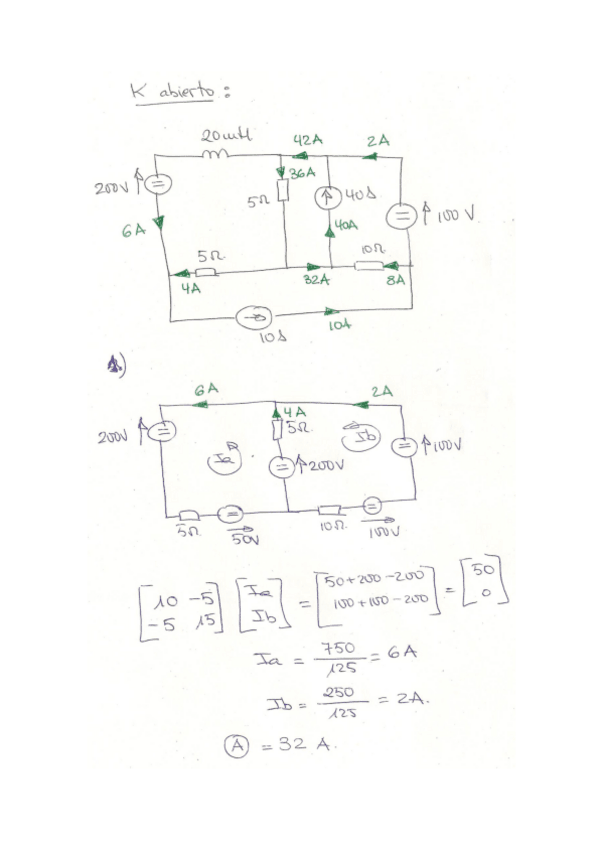 K abierto :
20mH 42A 2A
200V 36A 5Ω 40A 100V
6A 40A
5Ω 10Ω
4A 32A 8A
10A 10A
1.)
6A 2A
4A
200V 5Ω Ia Ib 100V
200V
5Ω 50V 10Ω 100V
[10 -5 -5 15] [Ia Ib] = [50+200-200 100+100-200] = [50 0]
Ia = 750/125 = 6A
Ib = 250/125 = 2A.
A = 32 A.